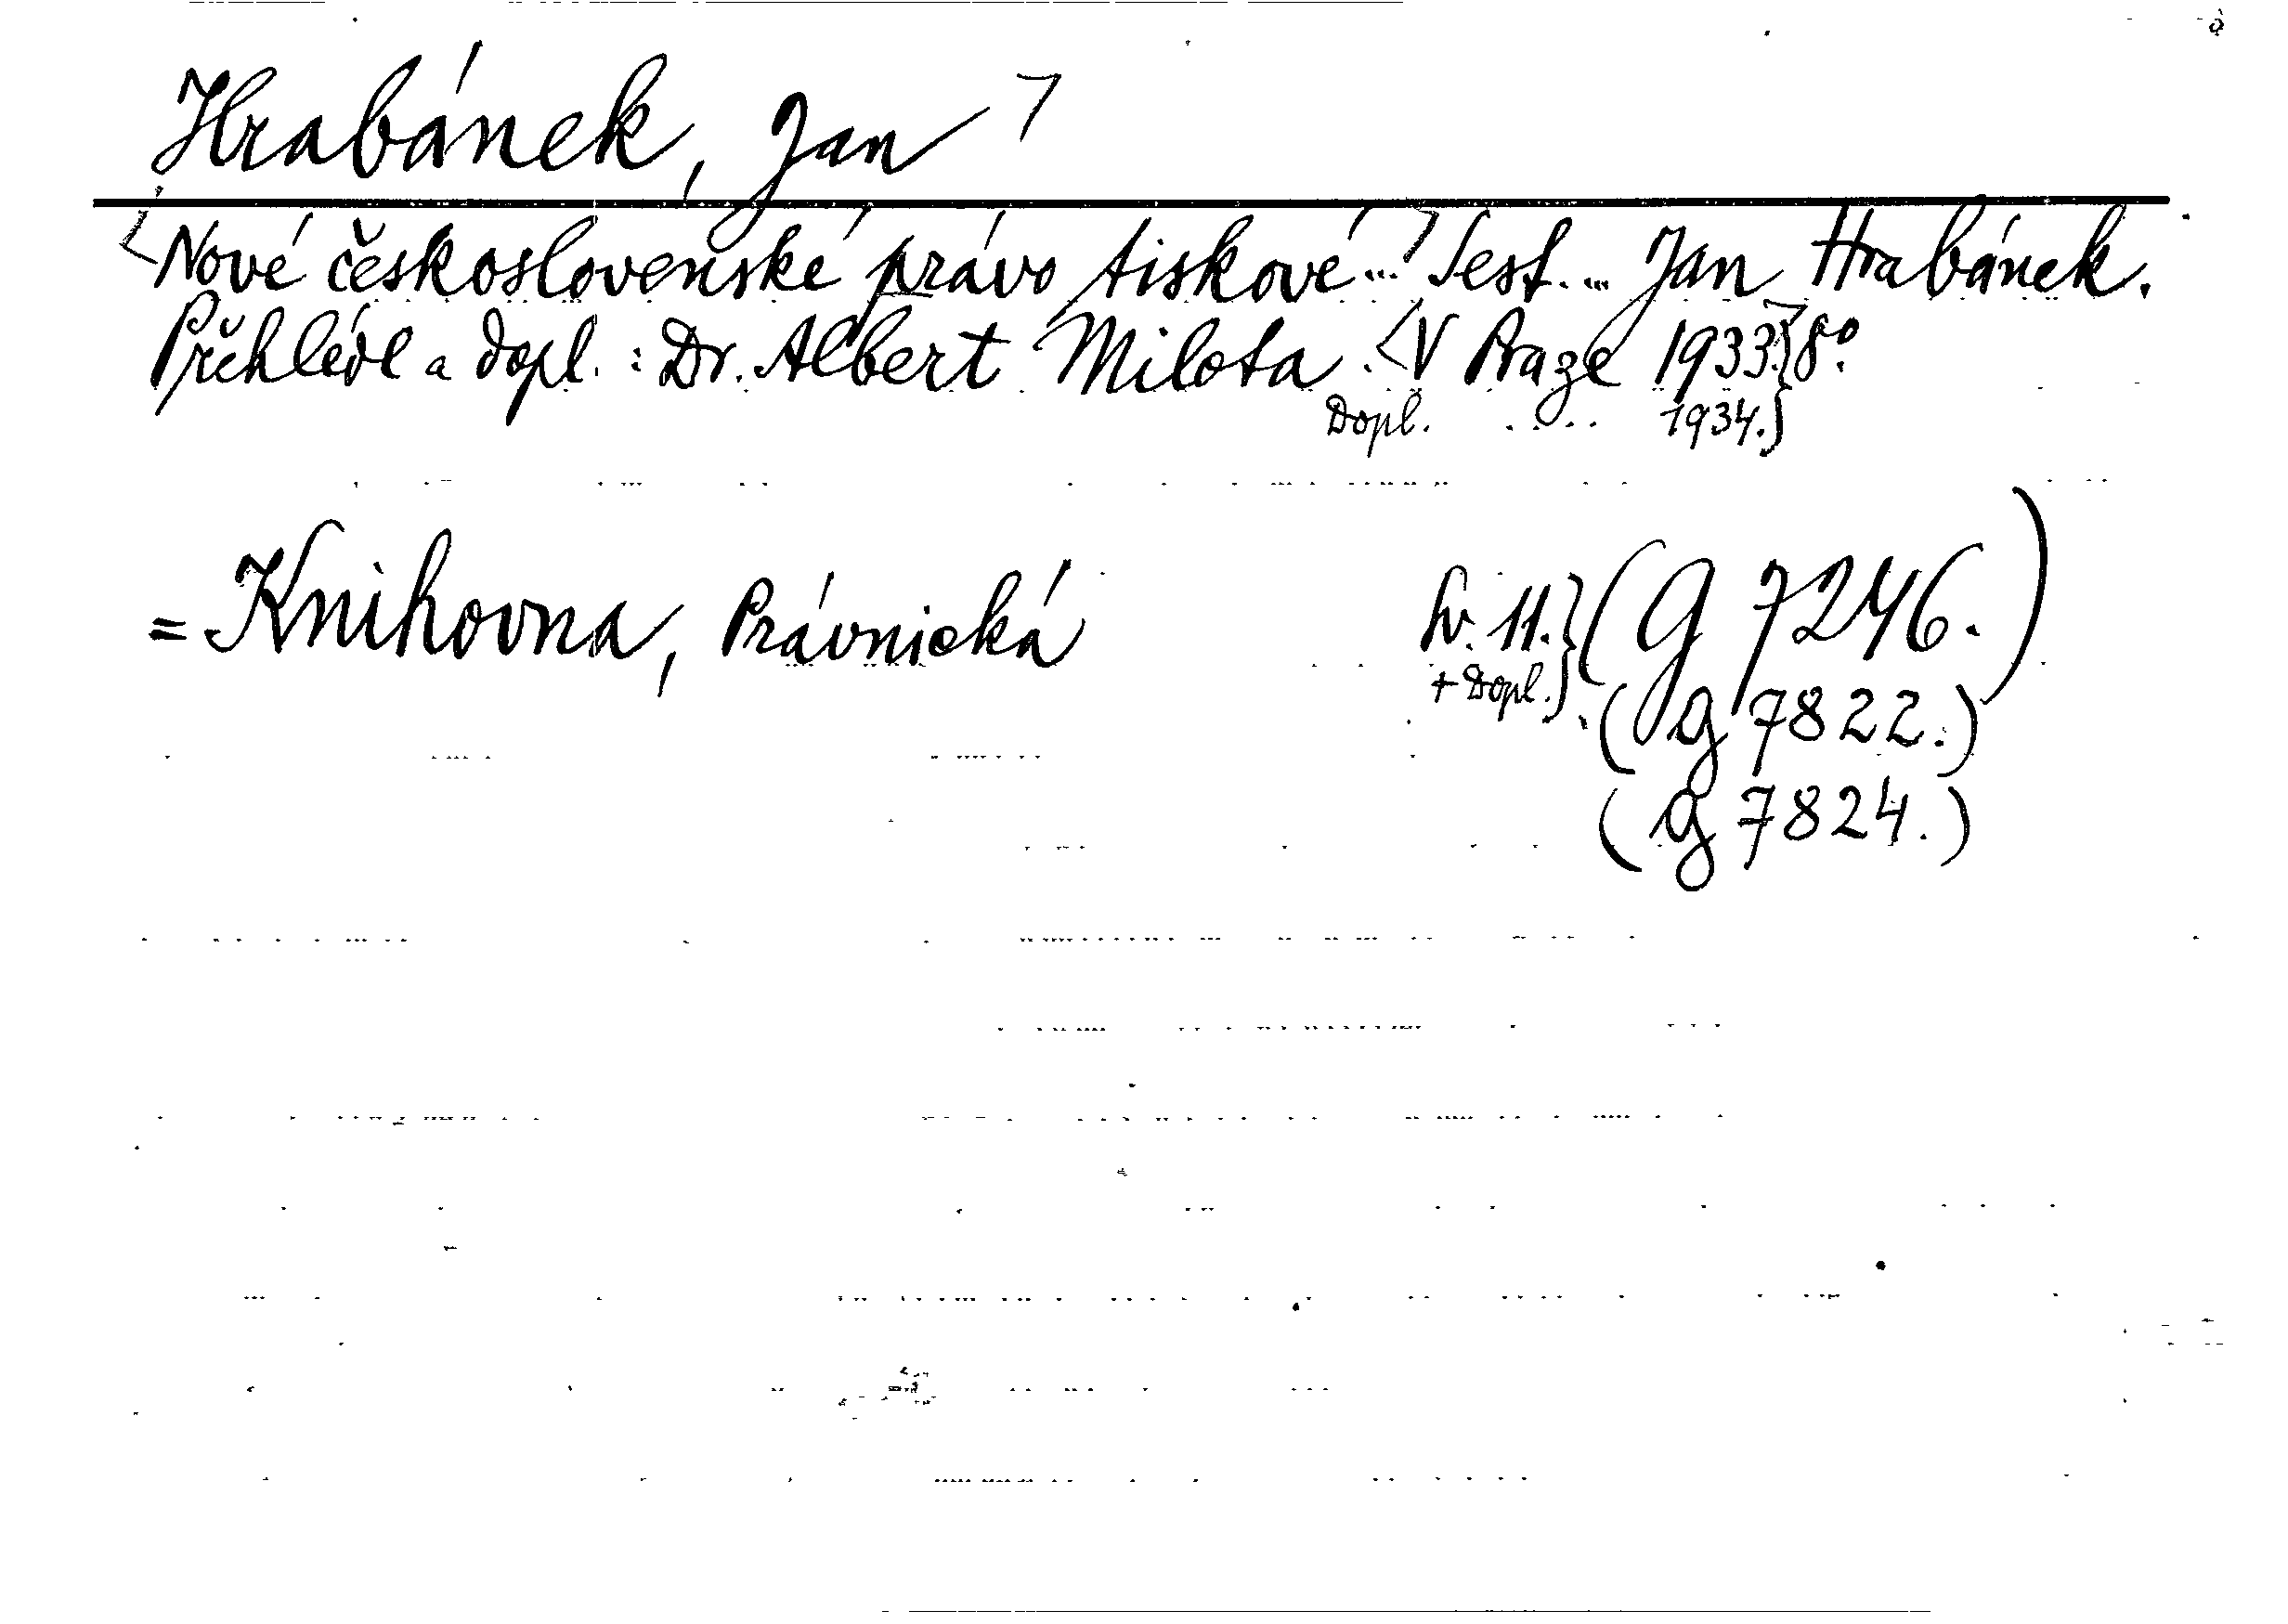 Hrabánek, Jan
Nové československé právo tiskové... Sest. ... Jan Hrabánek.
Přehlédl a dopl. : Dr. Albert Milota. V Praze 1933. 8°.
Dopl. ..... 1934.
= Knihovna, Právnická Sv. 11. (G 7246.)
+ Dopl. (g 7822.)
(g 7824.)